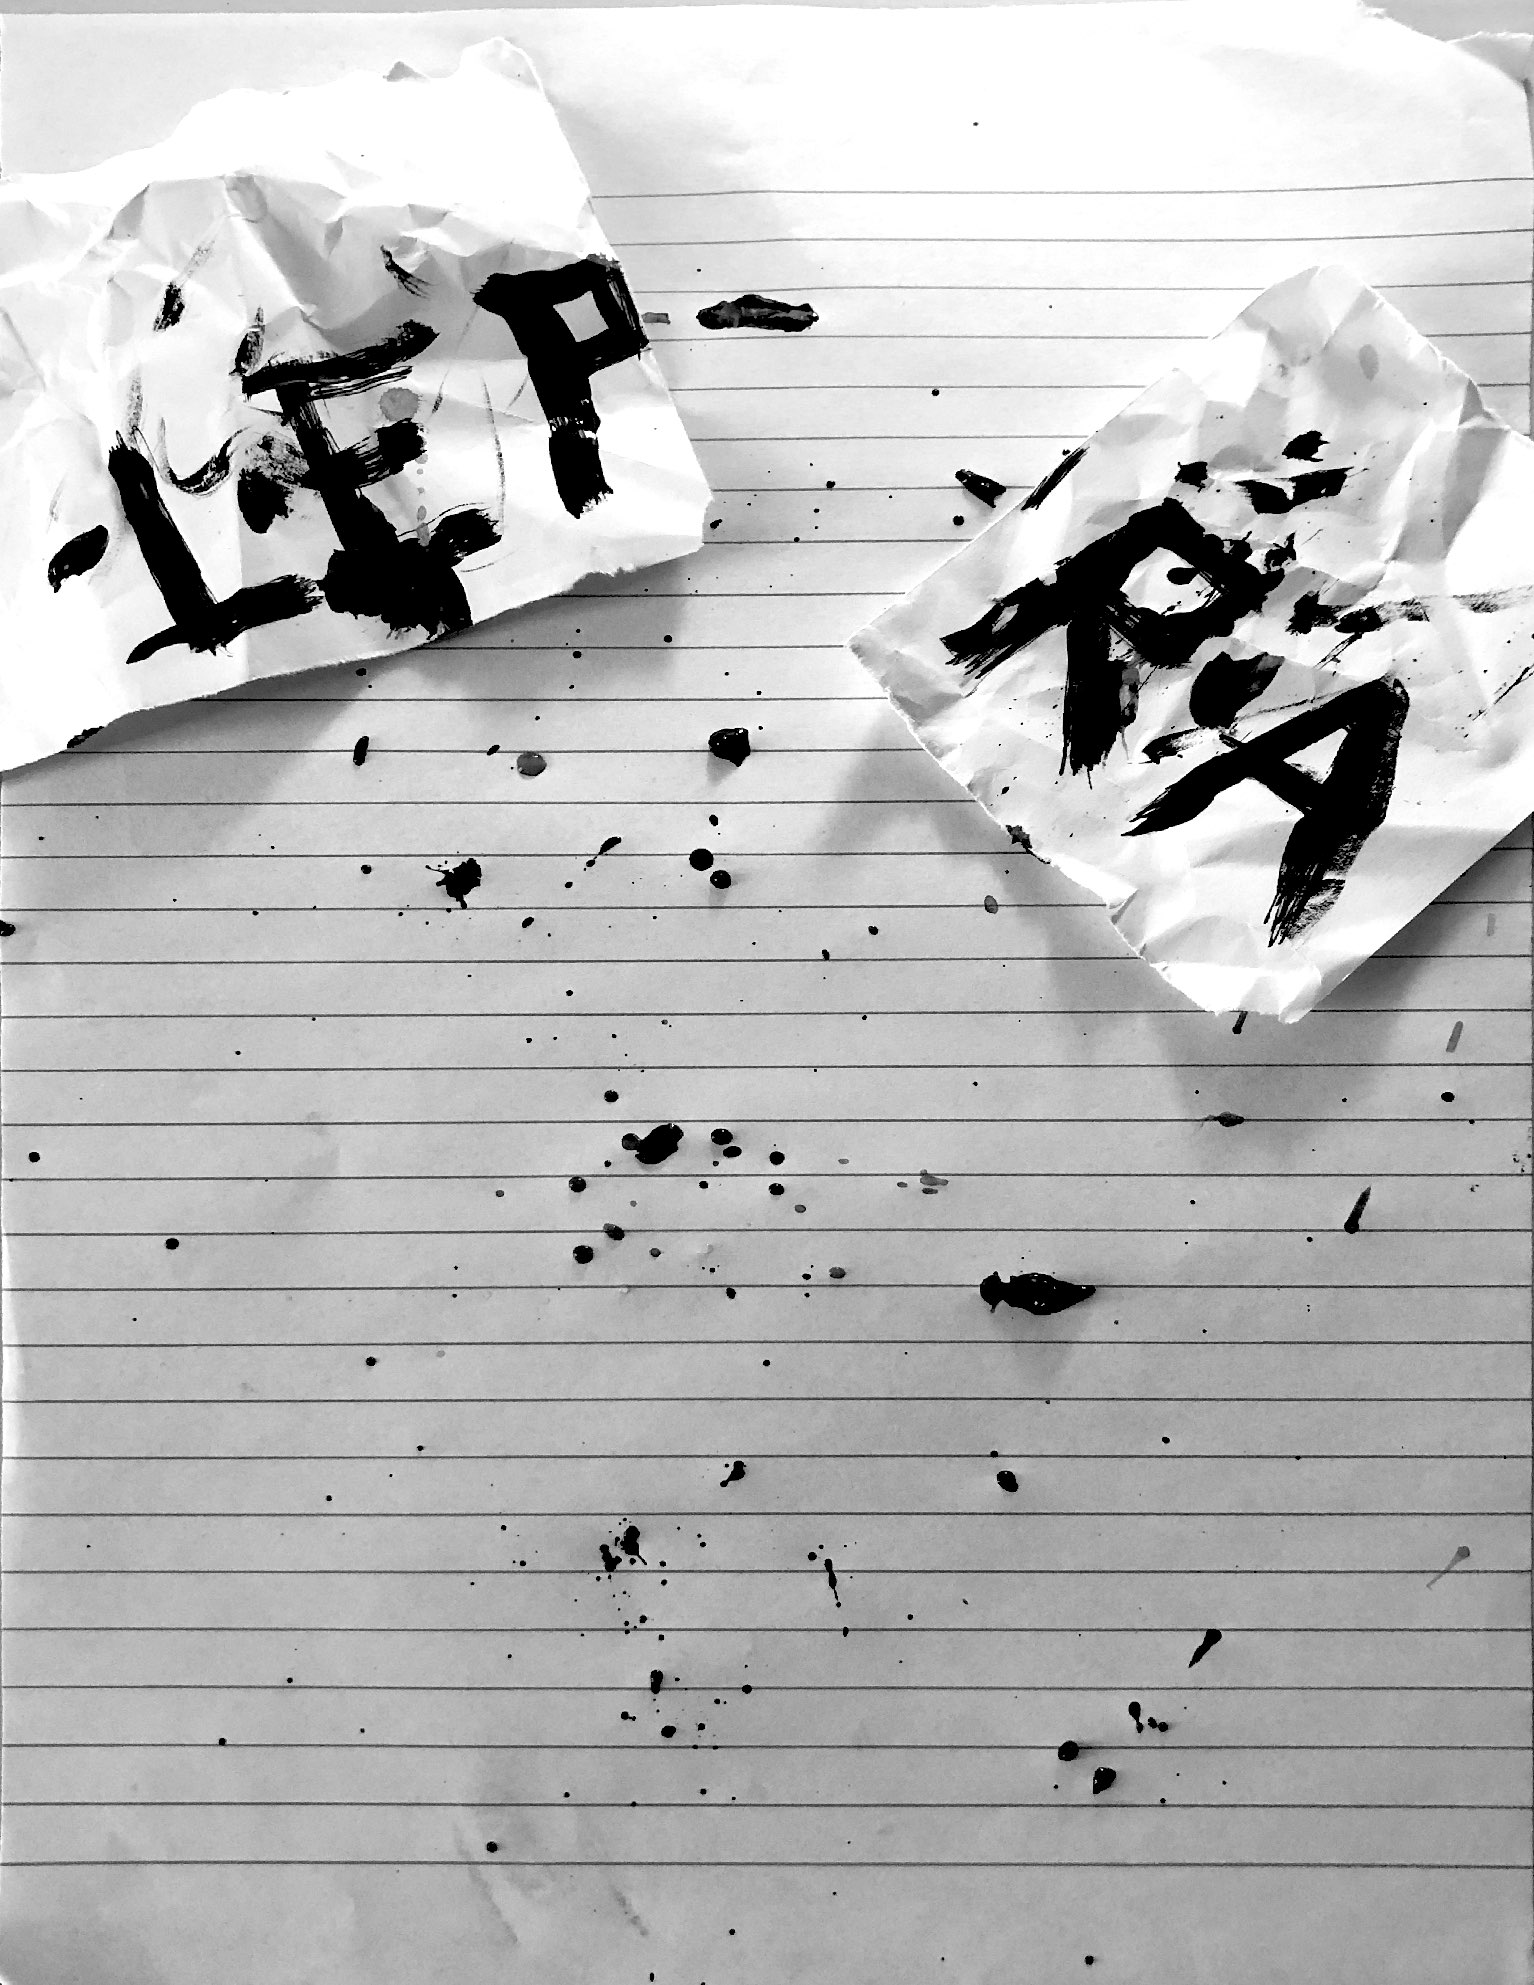 LEP
RA